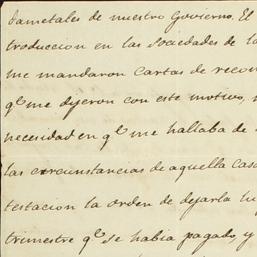 damentales de nuestro Govierno. El
troduccion en las sociedades de
me mandaron cartas de recon
qᵉ me dijeron con este motivo,
necesidad en qᵉ me hallaba de
las circunstancias de aquella Casa
testacion la orden de dejarla
trimestre qᵉ se habia pagado, y